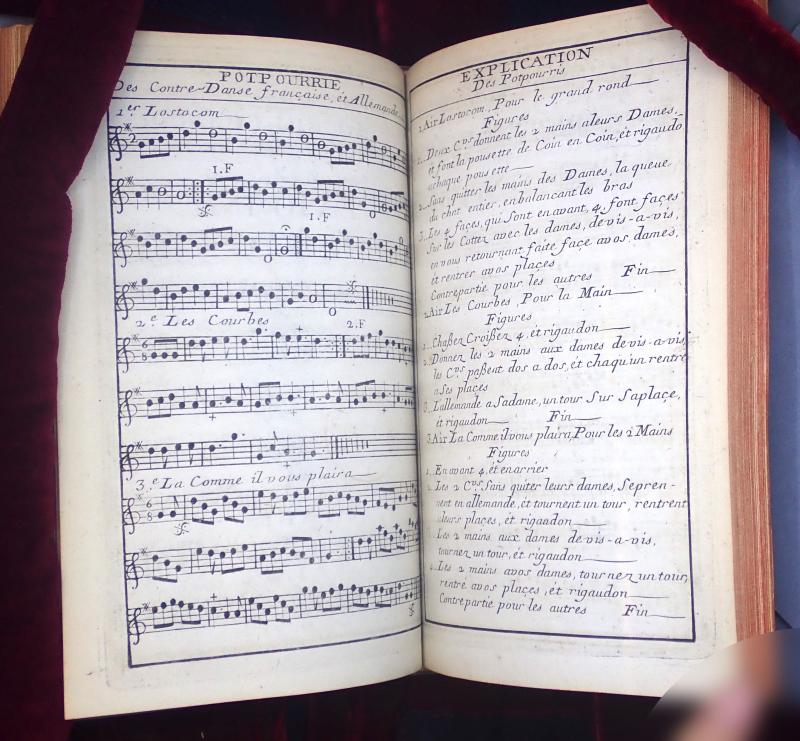 POTPOURRIE
Des Contre-Danse française, ét Allemande
1.er Lostocom
2
1.F
1.F
2.e Les Courbes
2.F
6
8
3.e La Comme il vous plaira
6
8
EXPLICATION
Des Potpourris
1 Air Lostocom, Pour le grand rond
Figures
1. Deux C.rs donnent les 2 mains aleurs Dames,
et font la pousette de Coin en Coin, ét rigaudo
achaque pousette
2. Sans quitter les mains des Dames, la queue
du chat entier, en balancant les bras
3. Les 4 façes, qui Sont en avant, 4 font façes
Sur les Cottez avec les dames, de vis-a-vis,
en vous retournant faite façe avos dames,
ét rentrer avos plaçes
Contrepartie pour les autres Fin
2 Air Les Courbes, Pour la Main
Figures
1. Chaßez Croißez 4, ét rigaudon
2. Donnez les 2 mains aux dames de vis-a-vis,
les C.rs paßent dos a dos, ét chaqu'un rentre
a Ses plaçes
3. L'allemande a Sadame, un tour Sur Saplaçe,
ét rigaudon Fin
3. Air La Comme il vous plaira, Pour les 2 Mains
Figures
1. En avant 4, ét enarrier
2. Les 2 C.rs Sans quiter leurs dames, Sepren-
nent en allemande, ét tournent un tour, rentrent
aleurs plaçes, ét rigaudon
3. Les 2 mains aux dames de vis-a-vis,
tournez un tour, ét rigaudon
4. Les 2 mains avos dames, tournez un tour,
rentré avos plaçes, ét rigaudon
Contrepartie pour les autres Fin